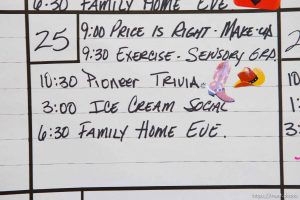 6:30 Family Home Eve
25
9:00 Price is Right - Make-up
9:30 Exercise - Sensory Grp.
10:30 Pioneer Trivia
3:00 Ice Cream Social
6:30 Family Home Eve.